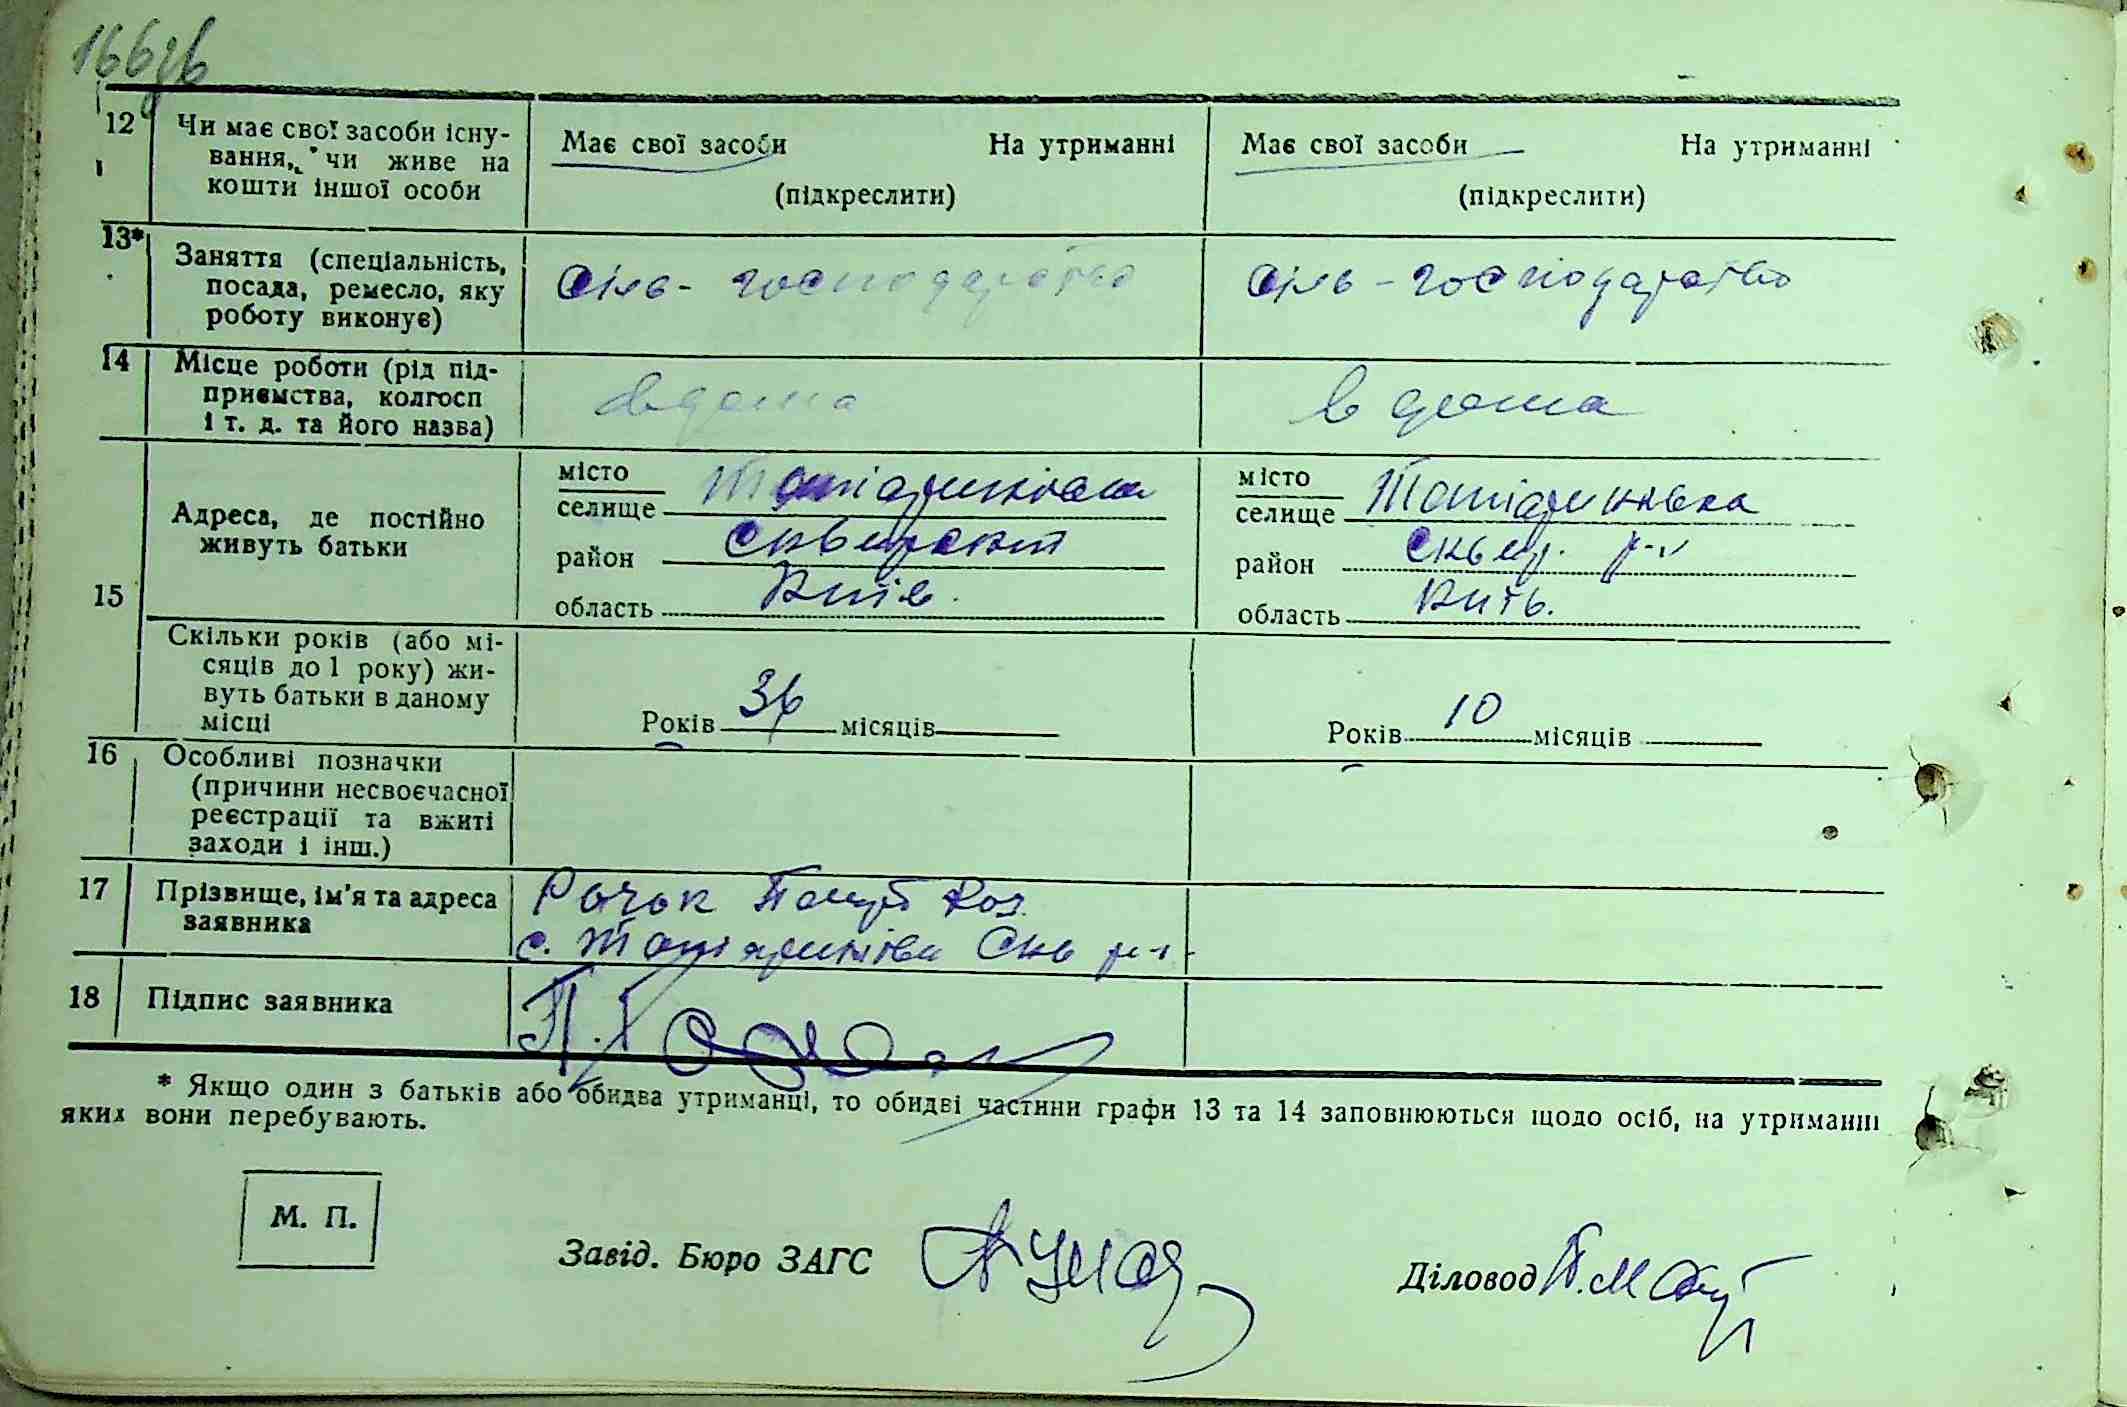 12 Чи має свої засоби існу- Має свої засоби На утриманні Має свої засоби На утриманні
вання, чи живе на
кошти іншої особи (підкреслити) (підкреслити)
13* Заняття (спеціальність, сіль-господарство сіль-господарство
посада, ремесло, яку
роботу виконує)
14 Місце роботи (рід під- вдома вдома
приємства, колгосп
і т. д. та його назва)
15 Адреса, де постійно живуть батьки
місто
селище Татаринівка
район Сквирский
область Київ.
місто
селище Татаринівка
район Сквир. р-н
область Київ.
Скільки років (або мі-
сяців до 1 року) жи-
вуть батьки в даному
місці Років 36 місяців Років 10 місяців
16 Особливі позначки
(причини несвоєчасної
реєстрації та вжиті
заходи і інш.)
17 Прізвище, ім'я та адреса
заявника
с. Скв р-н
18 Підпис заявника
* Якщо один з батьків або обидва утриманці, то обидві частини графи 13 та 14 заповнюються щодо осіб, на утриманні
яких вони перебувають.
М. П.
Завід. Бюро ЗАГС
Діловод